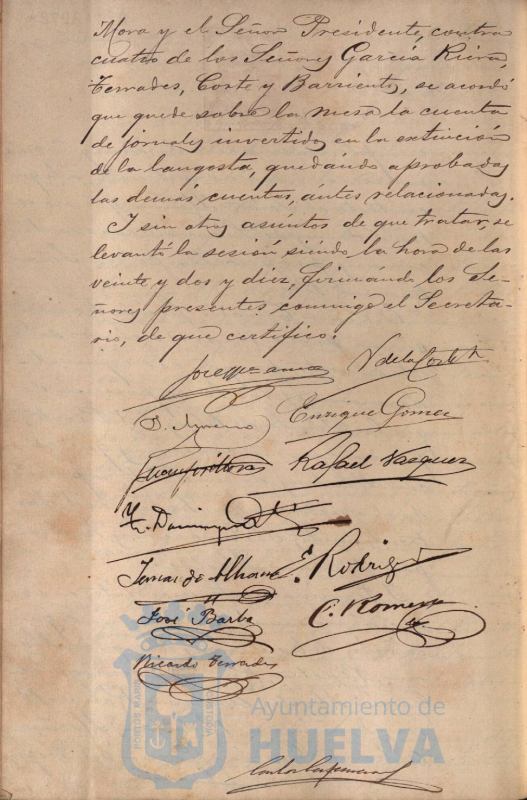 Mora y el Señor Presidente, contra
cuatro de los Señores García Riera,
Terrades, Corte y Barriento, se acordó
que quede sobre la mesa la cuenta
de jornales invertidos en la extinción
de la langosta, quedando aprobadas
las demás cuentas, ántes relacionadas.
I sin otros asuntos de que tratar, se
levantó la sesión siendo la hora de las
veinte y dos y diez, firmándo los Se-
ñores presentes conmigo el Secreta-
rio, de que certifico.
V de la Corte
Enrique Gomez
Rafael Vazquez
Y. Dominguez
Tomas de
E. Rodrig
José Barba
C. Romero
Ricardo Terrades
Ayuntamiento de
HUELVA
Carlos